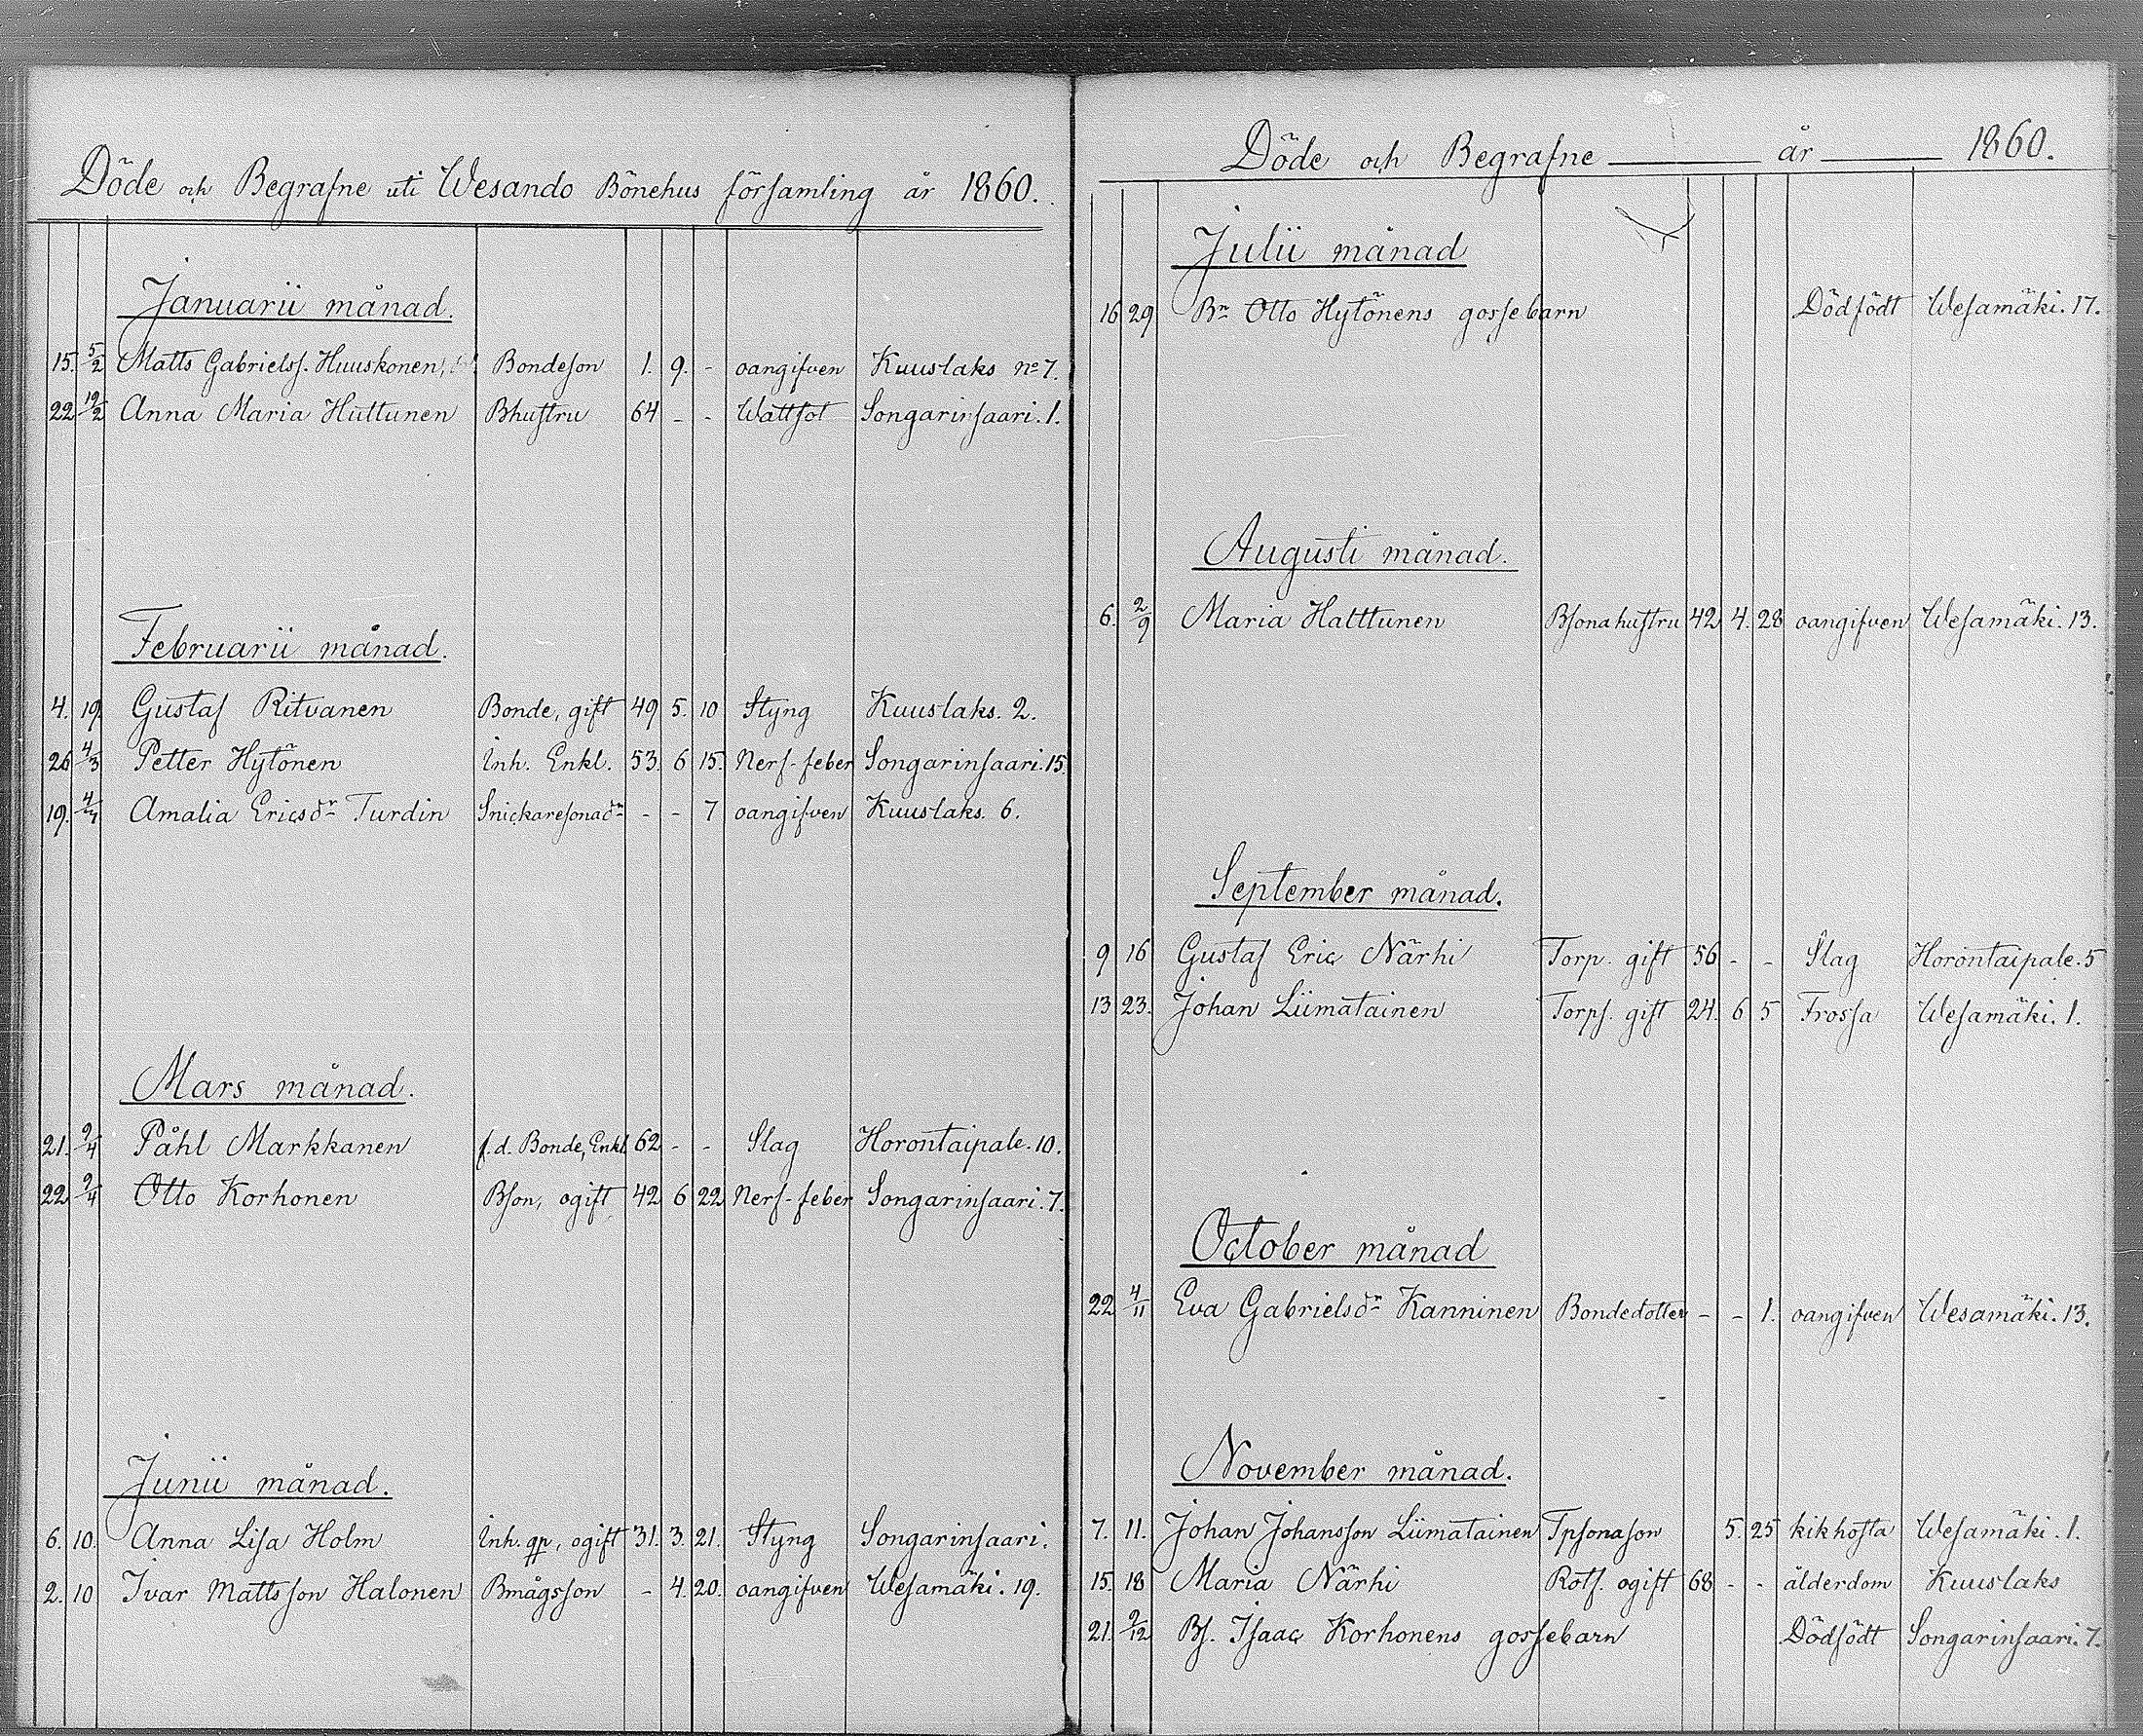 Döde och Begrafne uti Wesando Bönehus församling år 1860.
Januarii månad.
15. 5/2 Matts Gabrielss. Huuskonen, Bondeson 1. 9. - oangifven Kuuslaks no 7.
22 12/2 Anna Maria Huttunen Bhustru 64 - - Wattsot Songarinsaari. 1.
Februarii månad.
4. 19. Gustaf Ritvanen Bonde, gift 49 5. 10 Styng Kuuslaks. 2.
26 4/3 Petter Hytönen Inh. Enkl. 53. 6 15. Nerf-feber Songarinsaari. 15.
19. 4/4 Amalia Ericsdr Turdin Snickaresonadr - - 7 oangifven Kuuslaks. 6.
Mars månad.
21. 9/4 Påhl Markkanen f.d. Bonde, Enkl. 62 - - Slag Horontaipale. 10.
22. 9/4 Otto Korhonen Bson, ogift 42 6 22 Nerf-feber Songarinsaari. 7.
Junii månad.
6. 10. Anna Lisa Holm Inh. qp, ogift 31. 3. 21. Styng Songarinsaari.
2. 10 Ivar Mattsson Halonen Bmågsson - 4. 20. oangifven Wesamäki. 19.
Döde och Begrafne år 1860.
Julii månad
16 29 Bn Otto Hytönens gossebarn Dödfödt Wesamäki. 17.
Augusti månad.
6. 2/9 Maria Halttunen Bsonahustru 42 4. 28 oangifven Wesamäki. 13.
September månad.
9 16 Gustaf Eric Närhi Torp. gift 56 - - Slag Horontaipale. 5
13 23. Johan Liimatainen Torps. gift 24. 6 5 Frossa Wesamäki. 1.
October månad
22 4/11 Eva Gabrielsdr Kanninen Bondedotter - - 1. oangifven Wesamäki. 13.
November månad.
7. 11. Johan Johansson Liimatainen Tpsonason 5. 25 kikhosta Wesamäki. 1.
15. 18 Maria Närhi Rots. ogift 68 - - ålderdom Kuuslaks
21. 9/12 Bs. Isaac Korhonens gossebarn Dödfödt Songarinsaari. 7.